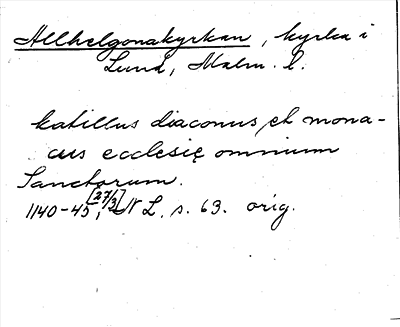 Allhelgonakyrkan, kyrka i
Lund, Malm. l.
katillus diaconus et mona-
cus ecclesię omnium
Sanctorum.
1140-45 [27/3], N L, s. 63. orig.